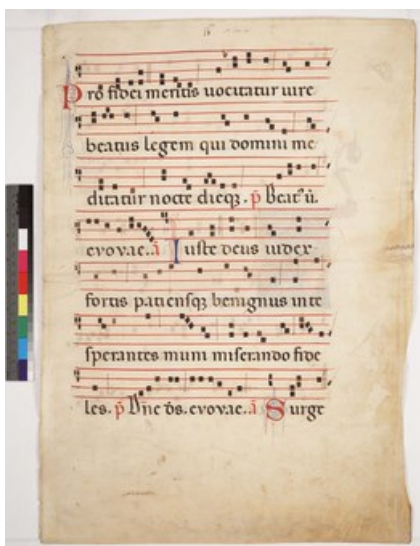 Pro fidei meritis vocitatur iure
beatus legem qui domini me
ditatur nocte dieqz. p̄ Beat9 ũ.
evovae. ā Iuste deus iudex
fortis patiensqz benignus in te
sperantes muni miserando fide
les. p̄ Dn̄e d̄s. evovae. ā Surge